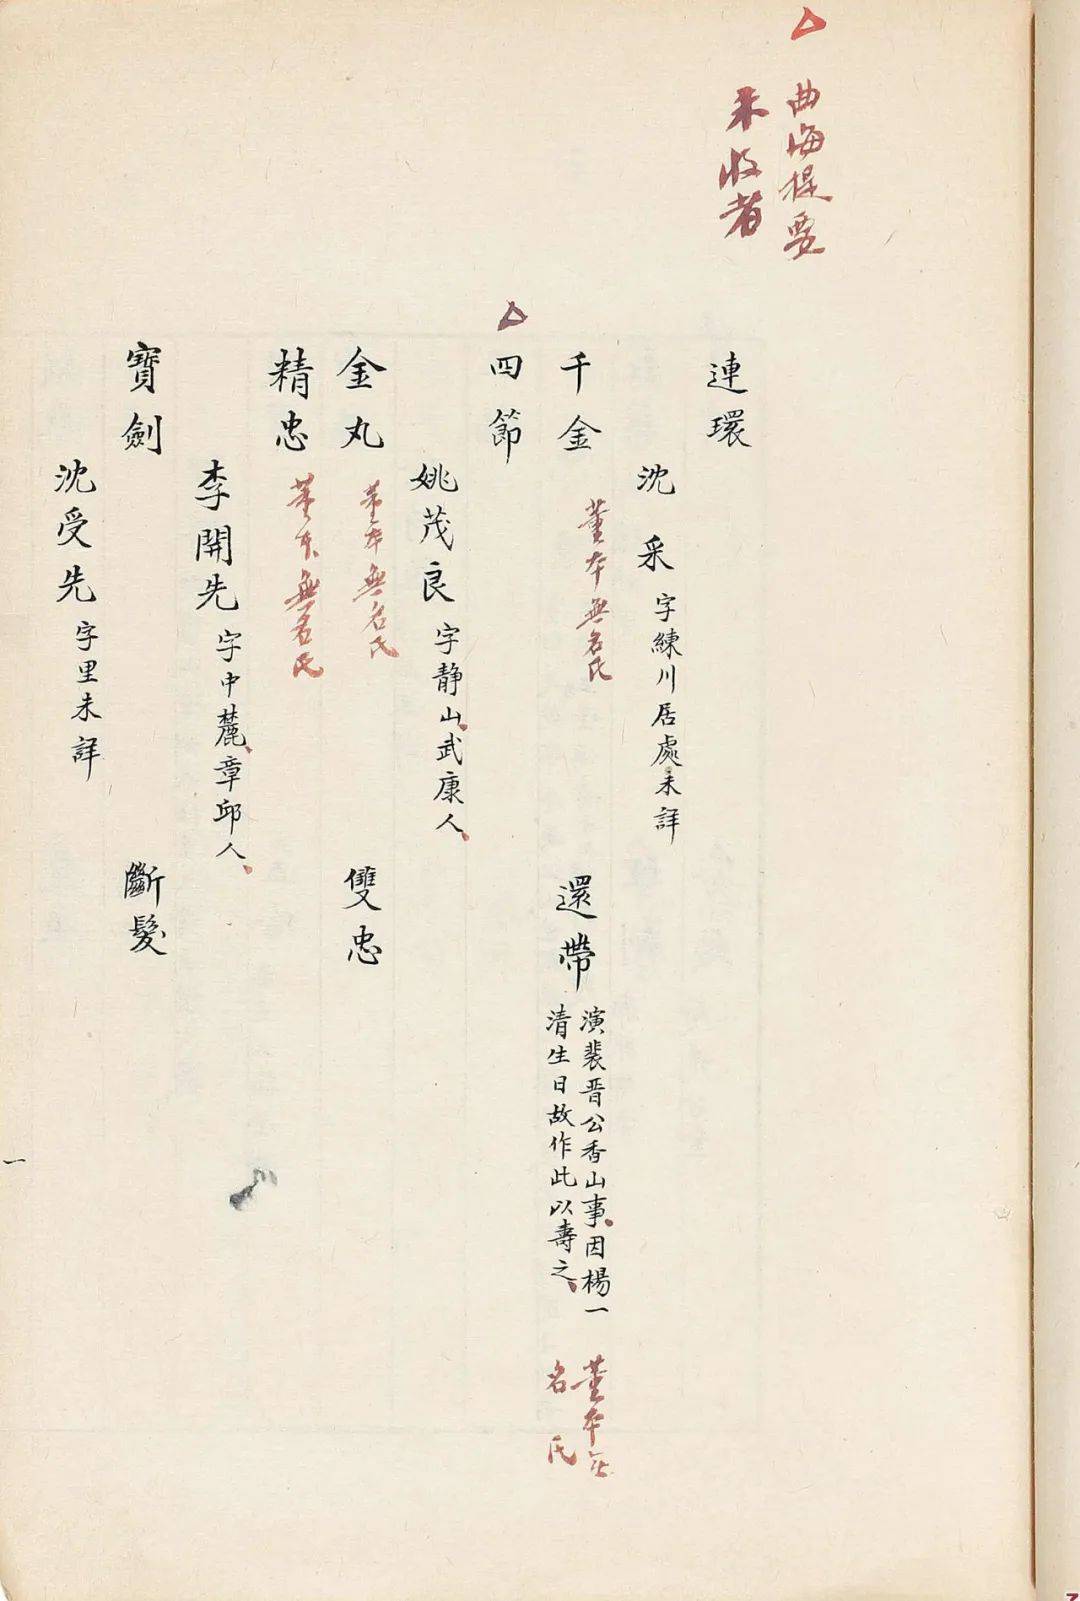 △曲海提要
未收者
連環
沈采字練川居處未詳
千金 董本無名氏 還帶 演裴晋公香山事、因楊一
清生日故作此以壽之、 董本無
名氏
△四節
姚茂良字静山、武康人、
金丸 董本無名氏 雙忠
精忠 董本無名氏
李開先字中麓、章邱人、
寶劍 斷髮
沈受先字里未詳
一